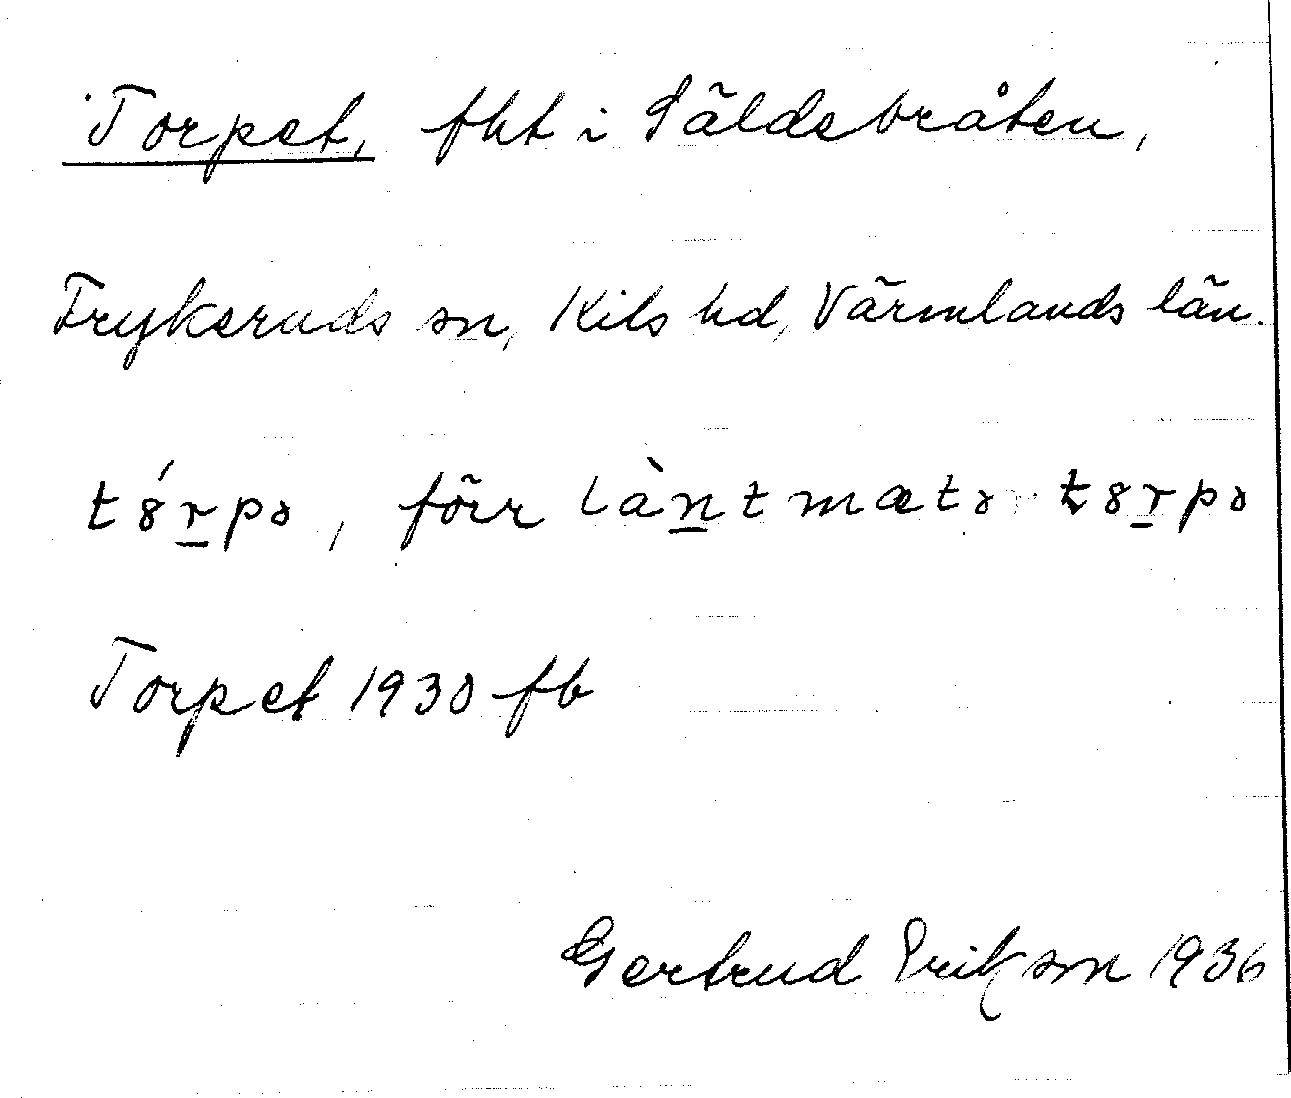 Torpet, fht i Säldebråten,
Frykeruds sn, Kils hd, Värmlands län.
tȣ́r̲pə, förr làn̲tmætə tȣr̲pə
Torpet 1930 fb
Gertrud Erikson 1936